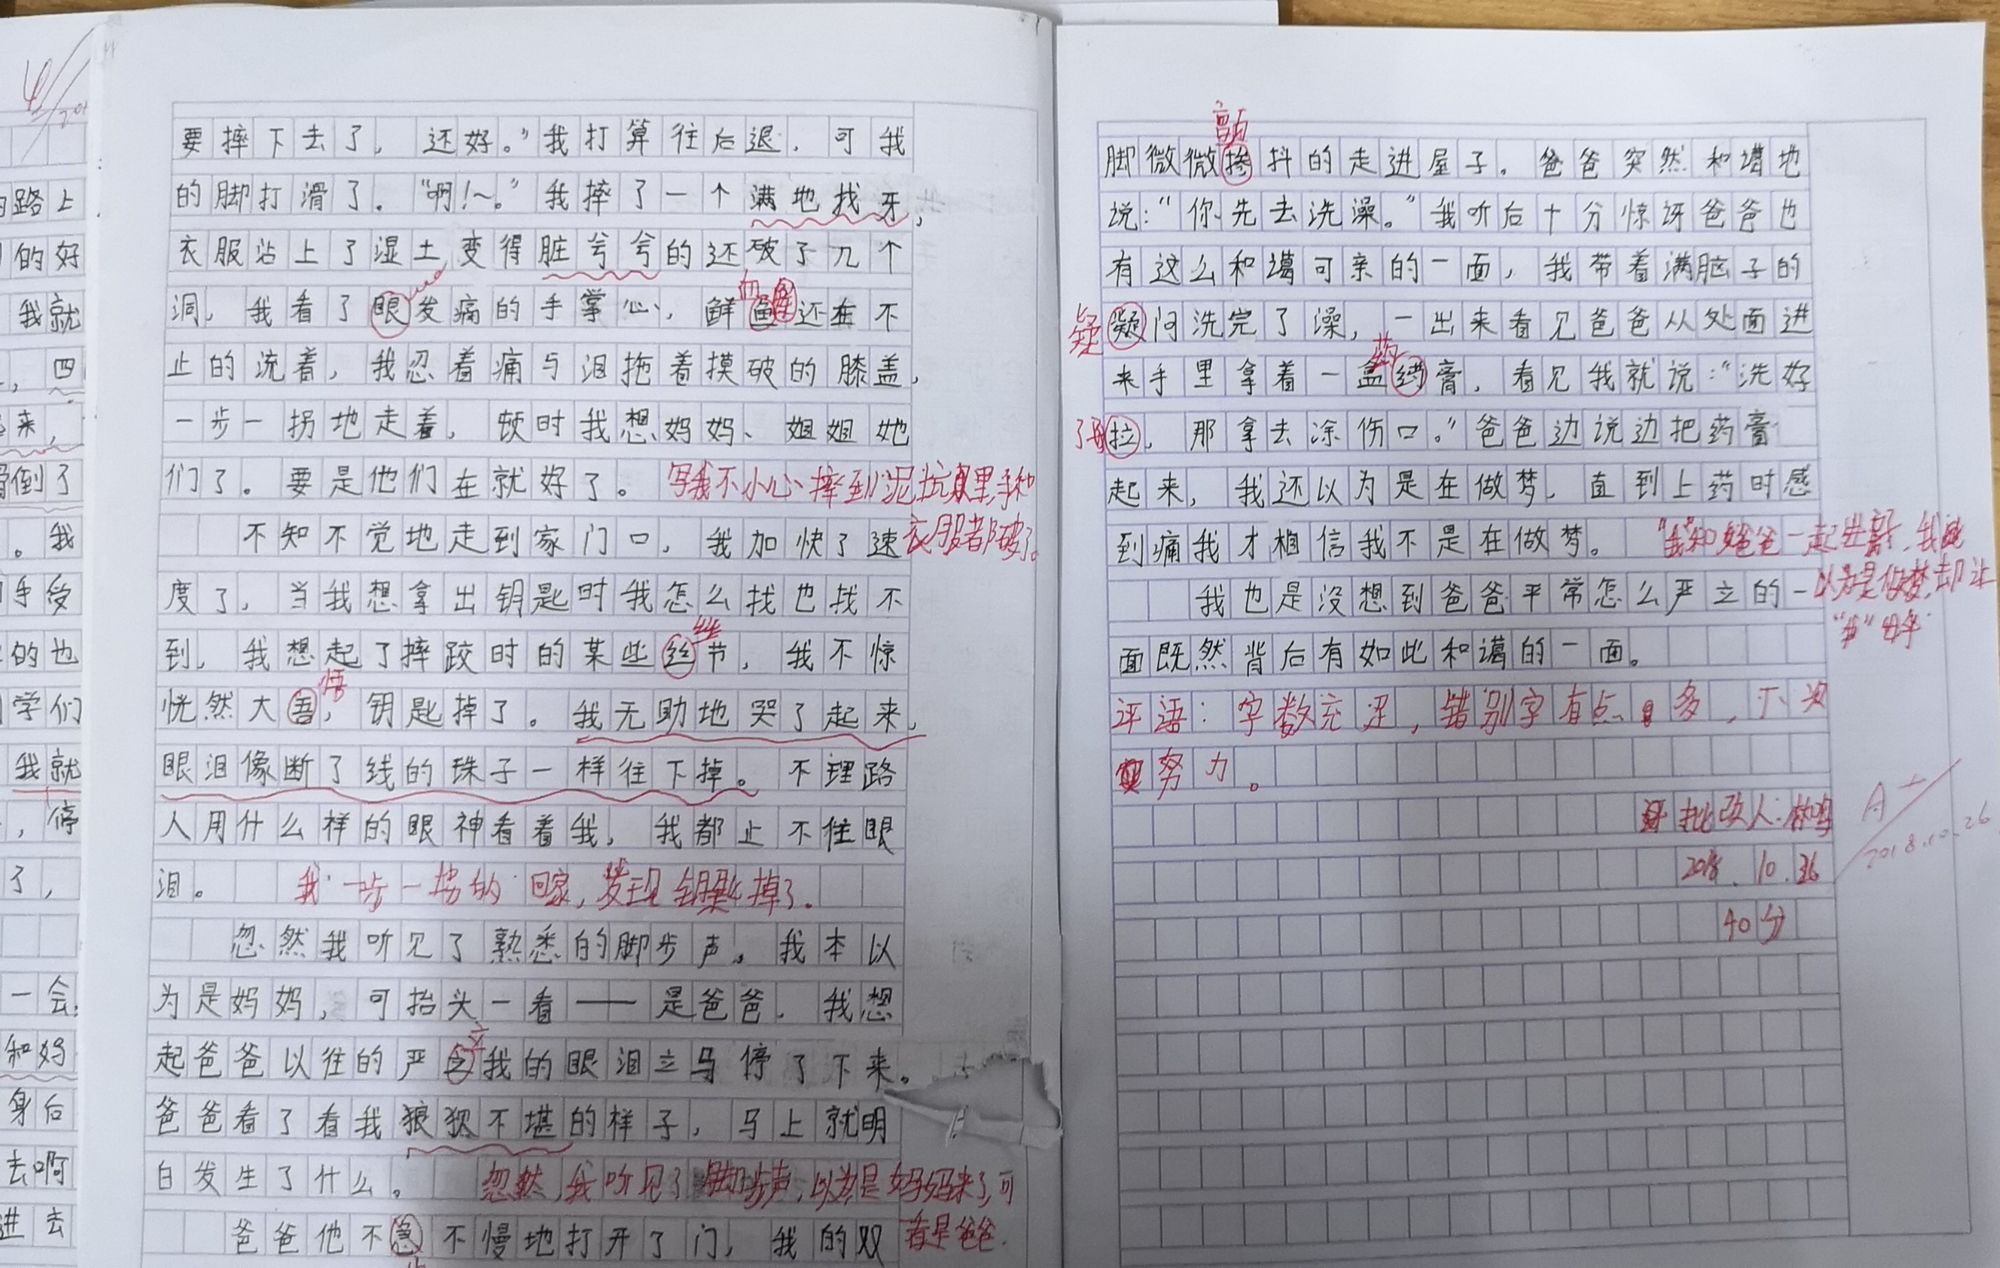 要摔下去了，还好。”我打算往后退，可我
的脚打滑了。“啊!~。”我摔了一个满地找牙，
衣服沾上了湿土，变得脏兮兮的还破了几个
洞，我看了眼发痛的手掌心，鲜血还在不
止的流着，我忍着痛与泪拖着摸破的膝盖，
一步一拐地走着，顿时我想妈妈、姐姐她
们了。要是他们在就好了。
写我不小心摔到泥坑里手和
衣服都破了。
不知不觉地走到家门口，我加快了速
度了，当我想拿出钥匙时我怎么找也找不
到，我想起了摔跤时的某些丝节，我不惊
恍然大吾，钥匙掉了。我无助地哭了起来，
悟
眼泪像断了线的珠子一样往下掉。不理路
人用什么样的眼神看着我，我都止不住眼
泪。
我一步一拐的回家，发现钥匙掉了。
忽然我听见了熟悉的脚步声。我本以
为是妈妈，可抬头一看——是爸爸，我想
起爸爸以往的严立我的眼泪立马停了下来。
爸爸看了看我狼狈不堪的样子，马上就明
白发生了什么。
忽然，我听见了脚步声，以为是妈妈来了，可
看是爸爸.
爸爸他不急不慢地打开了门，我的双
颤
脚微微掺抖的走进屋子。爸爸突然和蔼地
说：“你先去洗澡。”我听后十分惊讶爸爸也
有这么和蔼可亲的一面，我带着满脑子的
疑
凝问洗完了澡，一出来看见爸爸从处面进
药
来手里拿着一盒药膏，看见我就说：“洗好
了拉，那拿去涂伤口。”爸爸边说边把药膏
起来，我还以为是在做梦，直到上药时感
到痛我才相信我不是在做梦。
我也是没想到爸爸平常怎么严立的一
面既然背后有如此和蔼的一面。
评语：字数充足，错别字有点多，下次
努力。
批改人：
2018.10.26
40分
A+
2018.10.26
路上
的好
我就
，四
来，
倒了
。我
手受
的也
学们
我就
，停
了，
一会，
和妈
身后
去啊
进去